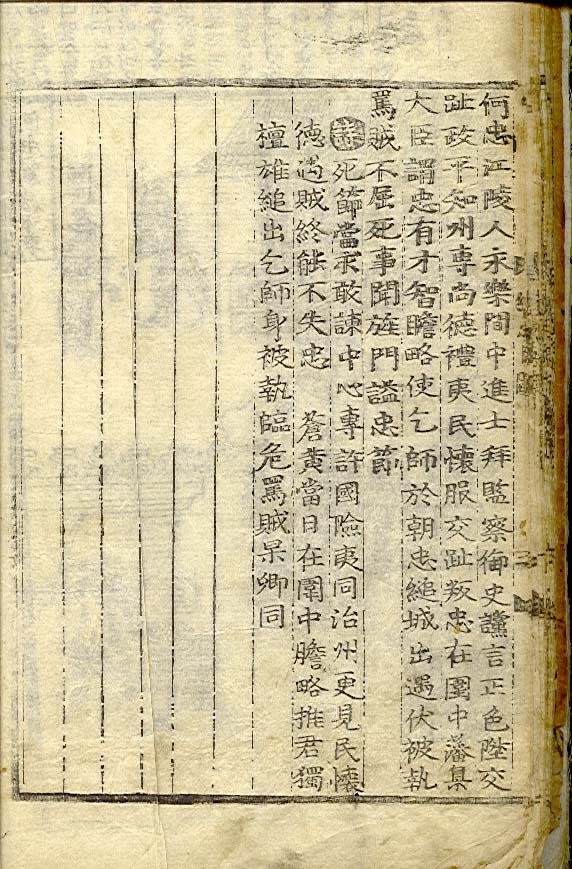 何忠江陵人永樂間中進士拜監察御史讜言正色陞交
趾政平知州專尚德禮夷民懷服交趾叛忠在圍中藩臬
大臣謂忠有才智瞻略使乞師於朝忠縋城出遇伏被執
罵賊不屈死事聞旌門謚忠節
詩死節當求敢諫中心專許國險夷同治州更見民懷
德遇賊終能不失忠 蒼黃當日在圍中膽略推君獨
擅雄縋出乞師身被執臨危罵賊杲卿同